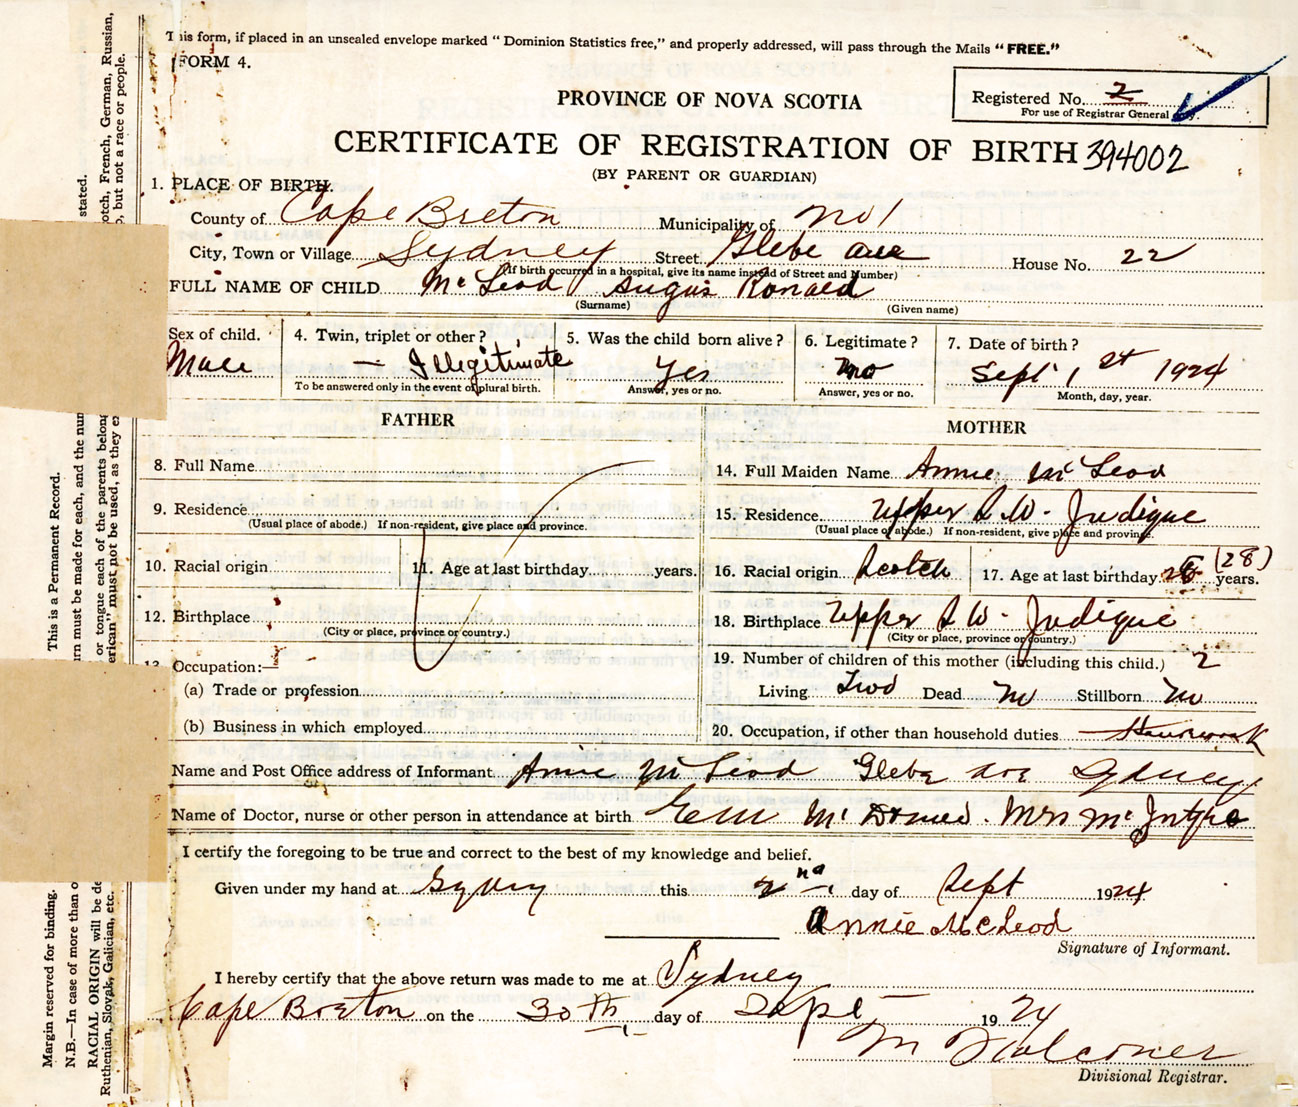 This form, if placed in an unsealed envelope marked "Dominion Statistics free," and properly addressed, will pass through the Mails "FREE."
FORM 4.
PROVINCE OF NOVA SCOTIA
Registered No. 2
For use of Registrar General only.
CERTIFICATE OF REGISTRATION OF BIRTH 394002
(BY PARENT OR GUARDIAN)
1. PLACE OF BIRTH.
County of Cape Breton Municipality of No 1
City, Town or Village Sydney Street Glebe ave House No. 22
(If birth occurred in a hospital, give its name instead of Street and Number)
FULL NAME OF CHILD McLeod Angus Ronald
(Surname) (Given name)
Sex of child. 4. Twin, triplet or other? 5. Was the child born alive? 6. Legitimate? 7. Date of birth?
Male — Illegitimate Yes No Sept 1st 1924
To be answered only in the event of plural birth. Answer, yes or no. Answer, yes or no. Month, day, year.
FATHER MOTHER
8. Full Name 14. Full Maiden Name Annie McLeod
9. Residence 15. Residence Upper S.W. Judique
(Usual place of abode.) If non-resident, give place and province. (Usual place of abode.) If non-resident, give place and province.
10. Racial origin 11. Age at last birthday years. 16. Racial origin Scotch 17. Age at last birthday (28) years.
12. Birthplace 18. Birthplace Upper S.W. Judique
(City or place, province or country.) (City or place, province or country.)
13. Occupation: 19. Number of children of this mother (including this child.) 2
(a) Trade or profession Living Two Dead No Stillborn No
(b) Business in which employed 20. Occupation, if other than household duties Housework
Name and Post Office address of Informant Annie McLeod Glebe Ave Sydney
Name of Doctor, nurse or other person in attendance at birth McDonald. Mrs McIntyre
I certify the foregoing to be true and correct to the best of my knowledge and belief.
Given under my hand at Sydney this 2nd day of Sept 1924
Annie McLeod
Signature of Informant.
I hereby certify that the above return was made to me at Sydney
Cape Breton on the 30th day of Sept 1924
M Falconer
Divisional Registrar.
Margin reserved for binding. This is a Permanent Record.
N.B.—In case of more than o
rn must be made for each, and the num
stated.
RACIAL ORIGIN will be de
or tongue each of the parents belong
otch, French, German, Russian,
Ruthenian, Slovak, Galician, etc.
erican" must not be used, as they ex
, but not a race or people.